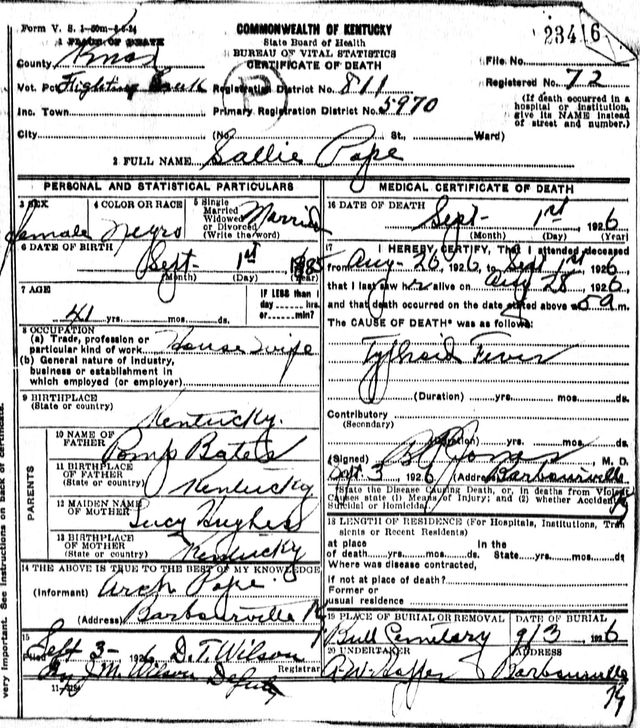 Form V. S. 1-50m-6-6-24
COMMONWEALTH OF KENTUCKY
State Board of Health
BUREAU OF VITAL STATISTICS
CERTIFICATE OF DEATH
23416
1 PLACE OF DEATH
County Knox
File No.
Vot. Pct. Fighting
Registration District No. 811
Registered No. 72
Inc. Town
Primary Registration District No. 5970
(If death occurred in a hospital or institution, give its NAME instead of street and number.)
City (No. St., Ward)
2 FULL NAME Sallie Pope
PERSONAL AND STATISTICAL PARTICULARS
3 SEX
4 COLOR OR RACE
5 Single Married Widowed or Divorced (Write the word)
Female
Negro
Married
6 DATE OF BIRTH
Sept 1st
(Month) (Day) (Year)
7 AGE
41 yrs. mos. ds.
IF LESS than 1 day hrs. or min?
8 OCCUPATION
(a) Trade, profession or particular kind of work House Wife
(b) General nature of industry, business or establishment in which employed (or employer)
9 BIRTHPLACE
(State or country) Kentucky.
PARENTS
10 NAME OF FATHER Pomp Bates
11 BIRTHPLACE OF FATHER (State or country) Kentucky
12 MAIDEN NAME OF MOTHER Lucy Hughes
13 BIRTHPLACE OF MOTHER (State or country) Kentucky
14 THE ABOVE IS TRUE TO THE BEST OF MY KNOWLEDGE
(Informant) Arch Pope.
(Address) Barbourville Ky
15
Filed Sept 3- 1926 D. T. Wilson
Registrar
By J. M. Wilson Deputy
MEDICAL CERTIFICATE OF DEATH
16 DATE OF DEATH
Sept- 1st 1926
(Month) (Day) (Year)
17 I HEREBY CERTIFY, That I attended deceased
from Aug- 26 1926, to Sept 1st 1926,
that I last saw her alive on Aug 28 1926,
and that death occurred on the date stated above at 59 m.
The CAUSE OF DEATH* was as follows:
Typhoid Fever
(Duration) yrs. mos. ds.
Contributory
(Secondary)
(Duration) yrs. mos. ds.
(Signed) Jones, M. D.
Sept. 3 1926 (Address) Barbourville Ky
*State the Disease Causing Death, or, in deaths from Violent Causes state (1) Means of Injury; and (2) whether Accidental, Suicidal or Homicidal.
18 LENGTH OF RESIDENCE (For Hospitals, Institutions, Transients or Recent Residents)
at place of death yrs. mos. ds. In the State yrs. mos. ds.
Where was disease contracted,
if not at place of death?
Former or
usual residence
19 PLACE OF BURIAL OR REMOVAL
DATE OF BURIAL
Bull Cemetary
9/3 1926
20 UNDERTAKER
ADDRESS
Barbourville
Ky
very Important. See Instructions on back of certificate.